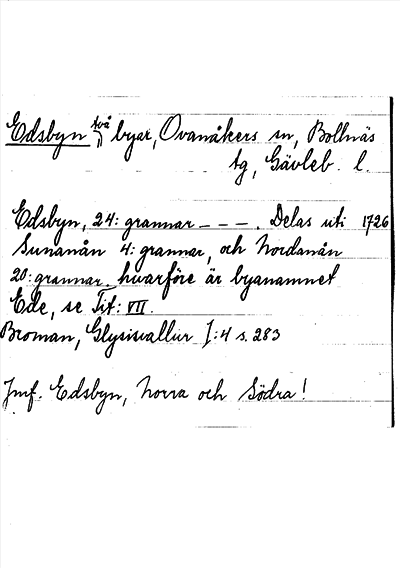 Edsbyn, två byar, Ovanåkers sn, Bollnäs
tg, Gävleb. l.
Edsbyn, 24: grannar - - - . Delas uti 1726
Sunanån 4: grannar, och Nordanån
20: grannar. hwarföre är byanamnet
Ede, se Tit: VII.
Broman, Glysisvallur I:4 s. 283
Jmf. Edsbyn, Norra och Södra!